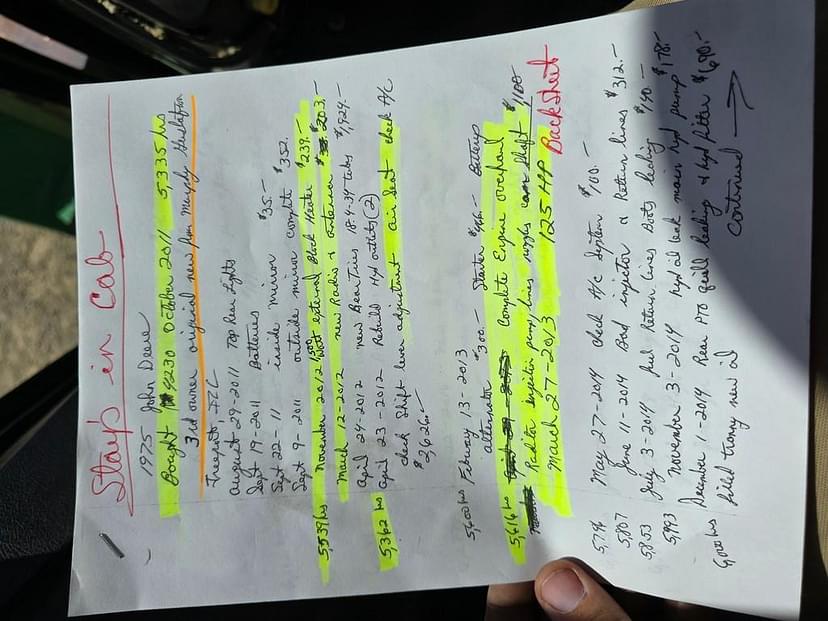 Stay's in Cab
1975 John Deere
Bought 8230 October 2011 5,335 hrs
3rd owner original new from Murphy
Freeport, ILL
August 29-2011 Top Rear Lights
Sept 19-2011 Batteries
Sept 22-11 inside mirror $35.-
Sept 9-2011 outside mirror complete $352.
5,539 hrs November 2012 1,500 Watt external Block Heater $239.-
March 12-2012 new Radio & antenna $203.-
April 24-2012 new Rear Tires 18.4-34 tubs $1,924.-
5,362 hrs April 23-2012 Rebuild Hyd outlets (2)
check Shift lever adjustment air seat check A/C
$2,626.-
5,600 hrs Febuary 13-2013 Starter Batterys
alternator $300.-
5,616 hrs Complete Engine overhaul
Radiator injector pump lines nozzles cam shaft
March-27-2013 125 HP Back Sheet
5,796 May 27-2014 check A/C System $100.-
5,807 June 11-2014 Bad injector & Return lines $312.-
5,853 July 3-2014 fuel Return lines Boots leaking $190.-
5,993 November 3-2014 hyd oil leak main hyd pump $178.-
6,000 hrs December 1-2014 Rear PTO quill leaking & hyd filter
filled tranny new oil
Continued →